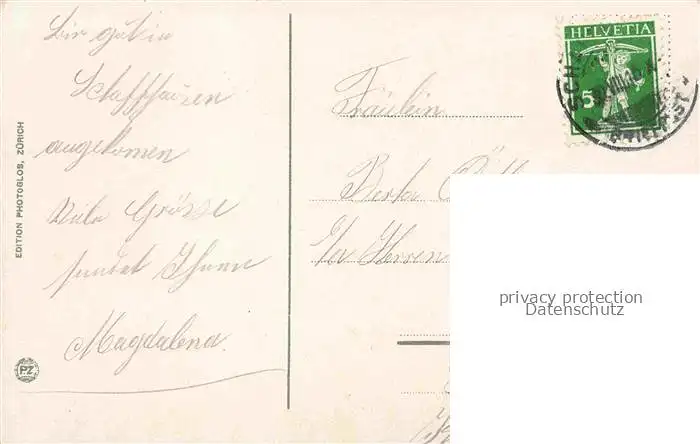 Bin gut in
Schaffhausen
angekomen
Viele Grüsse
sendet Ihnen
Magdalena.
EDITION PHOTOGLOB, ZÜRICH
PZ
HELVETIA
5
SCH
Fräulein
Berta
Herren
privacy protection
Datenschutz